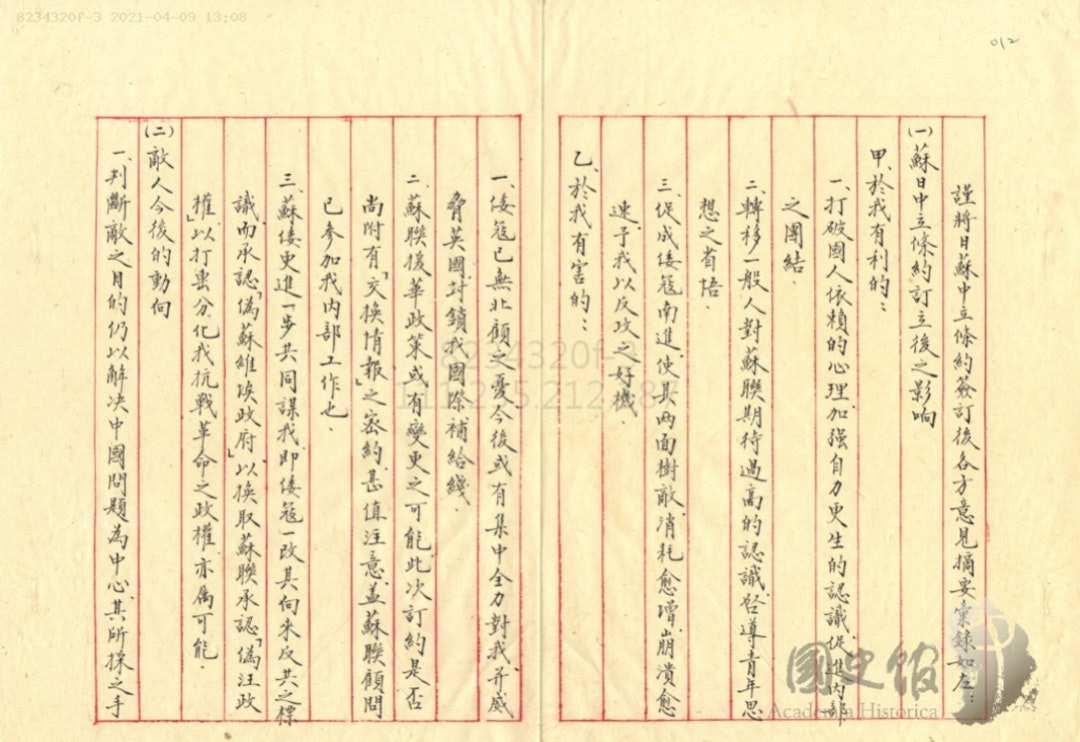 8234320f-3 2021-04-09 13:08
012
謹將日蘇中立條約簽訂後各方意見摘要彙錄如左：
(一)蘇日中立條約訂立後之影响
甲、於我有利的：
一、打破國人依賴的心理、加强自力更生的認識、促進內部
之團結．
二、轉移一般人對蘇聯期待過高的認識、啓導青年思
想之省悟．
三、促成倭寇南進、使其两面樹敵、消耗愈增、崩潰愈
速、予我以反攻之好機．
乙、於我有害的：
一、倭寇已無北顧之憂、今後或有集中全力對我、并威
脅英國、封鎖我國際補給綫．
二、蘇聯援華政策、或有變更之可能、此次訂約是否
尚附有「交换情報」之密約、甚值注意、盖蘇聯顧問
已參加我內部工作也．
三、蘇倭更進一步共同謀我、即倭寇一改其向來反共之標
識、而承認「偽蘇維埃政府」、以换取蘇聯承認「偽汪政
權」、以打擊分化我抗戰革命之政權、亦属可能．
(二)敵人今後的動向
一、判斷敵之目的、仍以解决中國問題為中心、其所採之手
8234320f-3
國史館
Academia Historica